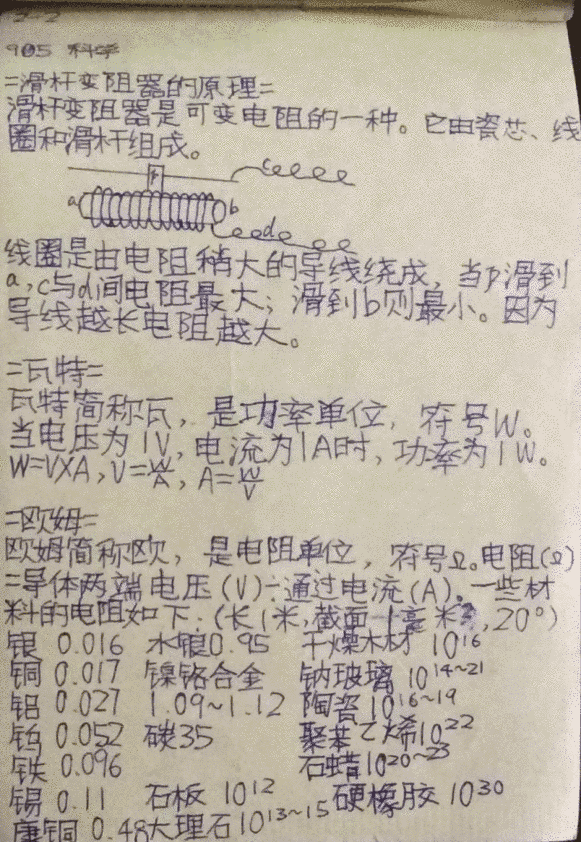 2-2
905 科学
=滑杆变阻器的原理=
滑杆变阻器是可变电阻的一种。它由瓷芯、线
圈和滑杆组成。
P c
a b
d
线圈是由电阻稍大的导线绕成，当p滑到
a，c与d间电阻最大；滑到b则最小。因为
导线越长电阻越大。
=瓦特=
瓦特简称瓦，是功率单位，符号W。
当电压为1V，电流为1A时，功率为1W。
W=V×A，V=W/A，A=W/V
=欧姆=
欧姆简称欧，是电阻单位，符号Ω。电阻(Ω)
=导体两端电压(V)÷通过电流(A)。一些材
料的电阻如下：(长1米，截面一1毫米²，20°)
银 0.016 水银0.95 干燥木材 10^16
铜 0.017 镍铬合金 钠玻璃 10^14~21
铝 0.027 1.09~1.12 陶瓷 10^16~19
钨 0.052 碳35 聚苯乙烯10^22
铁 0.096 石蜡10^20~23
锡 0.11 石板 10^12 硬橡胶 10^30
康铜 0.48大理石10^13~15